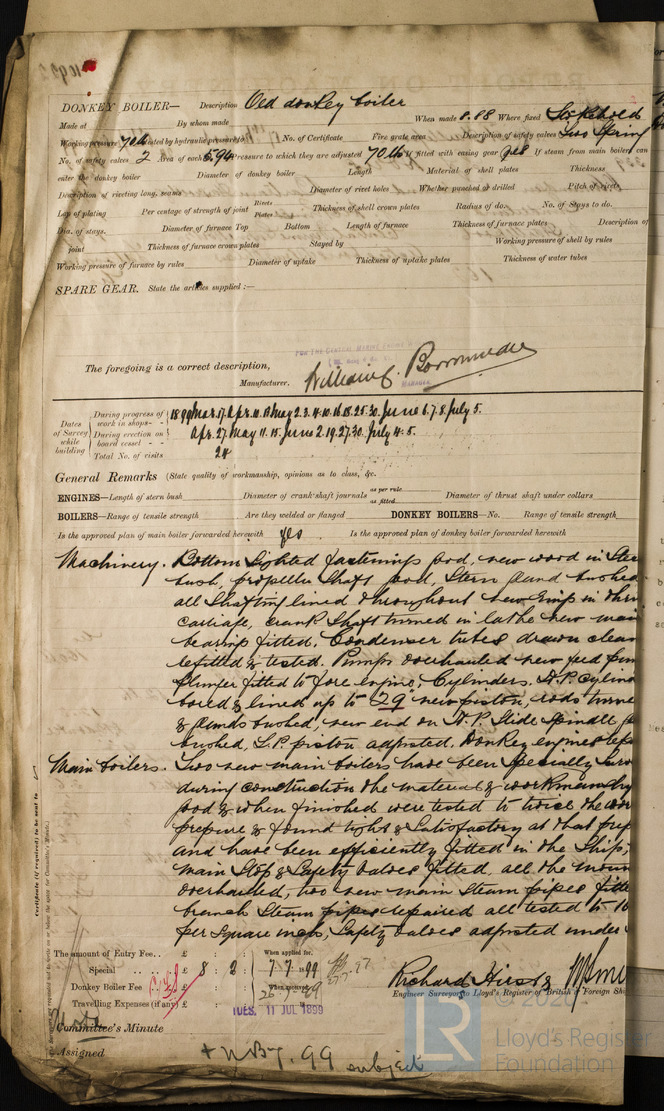 DONKEY BOILER— Description Old donkey boiler
Made at By whom made When made 8.88 Where fixed Stokehold
Working pressure 70 lb tested by hydraulic pressure to No. of Certificate Fire grate area Description of safety valves Two Spring
No. of safety valves 2 Area of each 5.94 Pressure to which they are adjusted 70 lb If fitted with easing gear yes If steam from main boilers can
enter the donkey boiler Diameter of donkey boiler Length Material of shell plates Thickness
Description of riveting long. seams Diameter of rivet holes Whether punched or drilled Pitch of rivets
Lap of plating Per centage of strength of joint Rivets Plates Thickness of shell crown plates Radius of do. No. of Stays to do.
Dia. of stays. Diameter of furnace Top Bottom Length of furnace Thickness of furnace plates Description of
joint Thickness of furnace crown plates Stayed by Working pressure of shell by rules
Working pressure of furnace by rules Diameter of uptake Thickness of uptake plates Thickness of water tubes
SPARE GEAR. State the articles supplied :—
FOR THE CENTRAL MARINE
The foregoing is a correct description,
Manufacturer. William C. Borrowdale
MANAGER
Dates of Survey while building
During progress of work in shops - - 1899 Mar.17. Apr.10.18 May 2.3.4.10.16.18.25.30. June 6.7.8. July 5.
During erection on board vessel - - Apr.27. May.11.15. June 2.19.27.30. July 4.5.
Total No. of visits 24
General Remarks (State quality of workmanship, opinions as to class, &c.
ENGINES—Length of stern bush Diameter of crank shaft journals as per rule as fitted Diameter of thrust shaft under collars
BOILERS—Range of tensile strength Are they welded or flanged DONKEY BOILERS—No. Range of tensile strength
Is the approved plan of main boiler forwarded herewith yes Is the approved plan of donkey boiler forwarded herewith
Machinery. Bottom Sighted fastenings good, new wood in Ster
bush, propeller Shaft good, Stern gland bushed
all Shafting lined throughout new rings in thru
carriage, crank Shaft turned in lathe new main
bearings fitted. Condenser tubes drawn clean
refitted & tested. Pumps overhauled new feed pum
plunger fitted to fore engine, Cylinders. H.P. cylin
bored & lined up to 29" new piston, rods turne
& glands bushed, new end on H.P. Slide Spindle
bushed, L.P. piston adjusted. Donkey engines
Main boilers. Two new main boilers have been Specially Surv
during construction the material & workmanship
good & when finished were tested to twice the wor
pressure & found tight & Satisfactory at that pres
and have been efficiently fitted in the Ship;
main Stop & Safety valves fitted, all the moun
overhauled, two new main Steam pipes fitte
branch Steam pipes repaired all tested to
per square inch, Safety valves adjusted under
Certificate (if required) to be sent to
The amount of Entry Fee . . £ : : When applied for,
Special . . £ 8 : 2 : 7.7.1899
Donkey Boiler Fee £ : : When received,
Travelling Expenses (if any) £ : :
TUES. 11 JUL 1899
Richard Hirst &
Engineer Surveyor to Lloyd's Register of British & Foreign Sh
Committee's Minute
Assigned + NB7.99 subject
LR
Lloyd's Register
Foundation